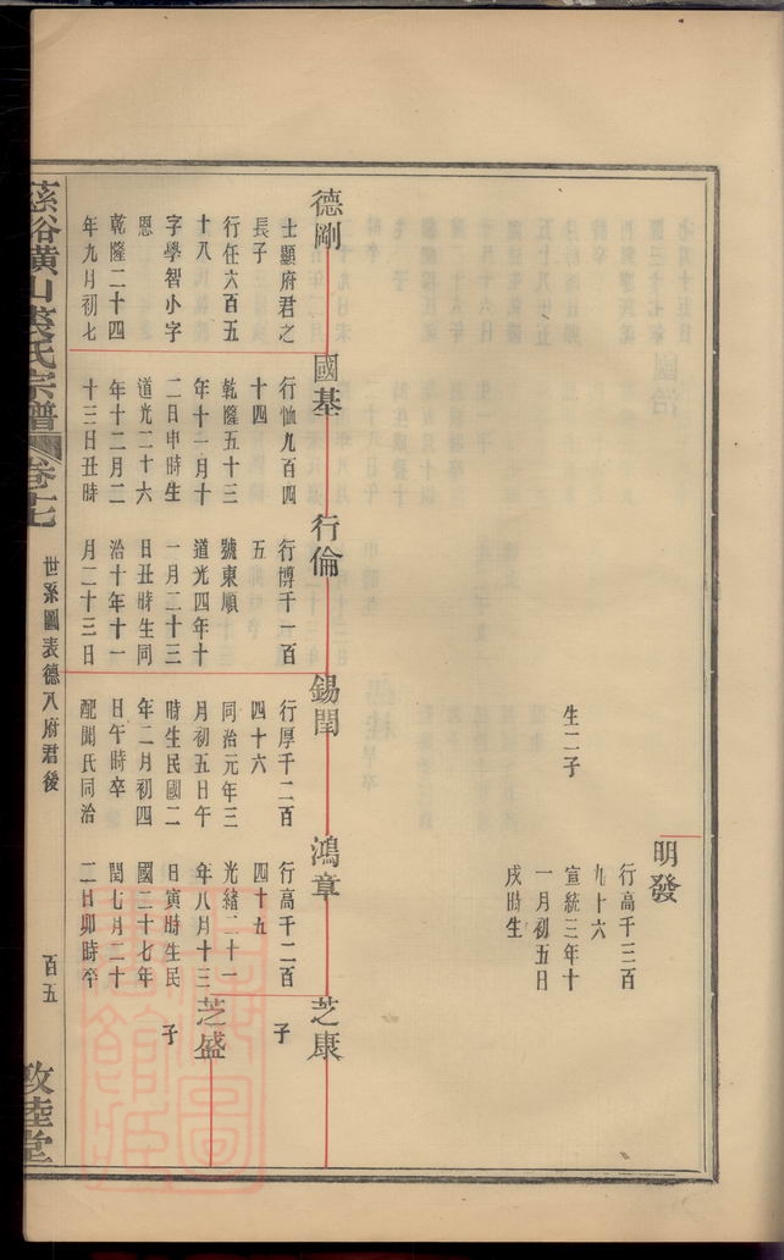 生二子
明發
行高千三百
九十六
宣統三年十
一月初五日
戌時生
德剛
士顯府君之
長子
行任六百五
十八
字學智小字
恩
乾隆二十四
年九月初七
國基
行恤九百四
十四
乾隆五十三
年十一月十
二日申時生
道光二十六
年十二月二
十三日丑時
行倫
行博千一百
五
號東順
道光四年十
一月二十三
日丑時生同
治十年十一
月二十三日
錫閏
行厚千二百
四十六
同治元年三
月初五日午
時生民國二
年二月初四
日午時卒
配聞氏同治
鴻章
行高千二百
四十五
光緒二十一
年八月十三
日寅時生民
國二十七年
閏七月二十
二日卯時卒
芝康
子
芝盛
子
慈谿橫山裘氏宗譜
卷十七
世系圖表德八府君後
百五
敦睦堂